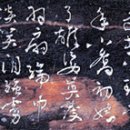 年小喬初嫁
了雄姿英發
羽扇綸巾
談笑間檣櫓